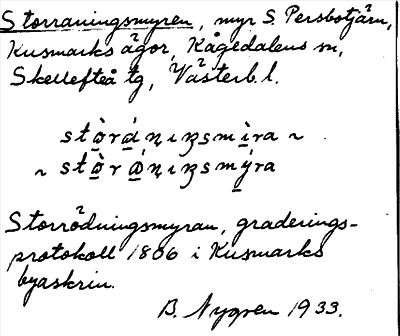 Storraningsmyren, myr S. Persbotjärn,
Kusmarks ägor, Kågedalens sn,
Skellefteå tg, Västerb. l.
stòránıŋsmìra ~
~ stòránıŋsmýra
Storrödningsmyran, graderings-
protokoll 1806 i Kusmarks
byaskrin.
B. Nygren 1933.